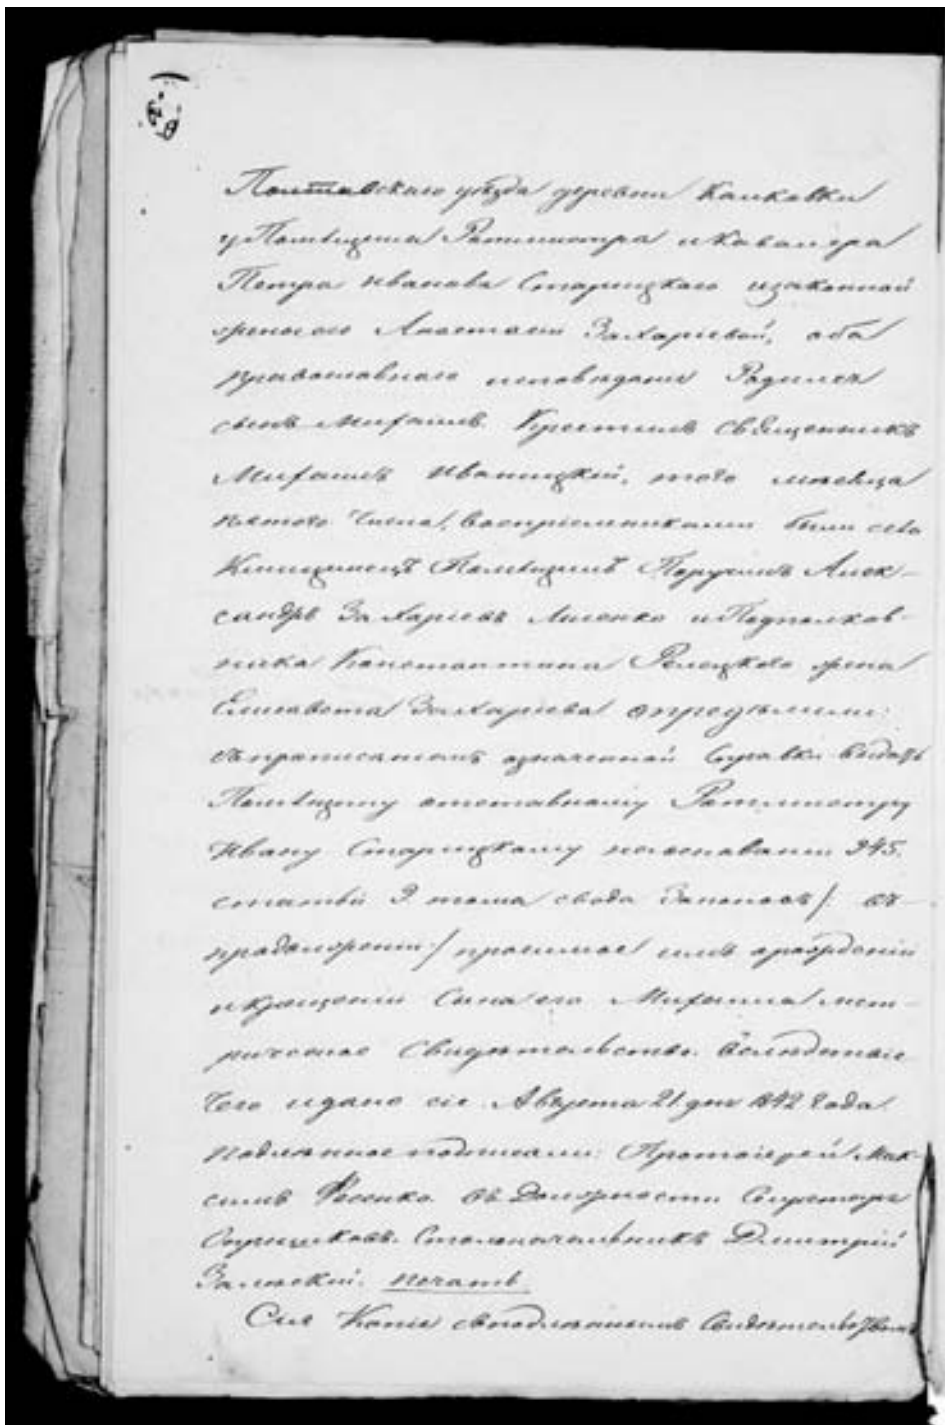 Полтавскаго уѣзда деревни Калковки
у Помѣщика Ротмистра и Кавалера
Петра Иванова Старицкаго и законной
жены его Анастасіи Захаріевой, оба
православнаго исповѣданія Родился
сынъ Михаилъ. Крестилъ Священникъ
Михаилъ Иваницкій, того мѣсяца
пятого Числа, воспріемниками были села
Помѣщикъ Поручикъ Алек-
сандръ Захаріевъ Лисенко и Подполков-
ника Константина жена
Елисавета Захаріева опредѣлили:
съ прописаніемъ означенной Справки выдать
Помѣщику отставному Ротмистру
Ивану Старицкому на основаніи 945.
статьи 9 тома свода Законовъ /: въ
продолженіи :/ просимое имъ о рожденіи
и крещеніи Сына его Михаила мет-
рическое Свидѣтельство. Вслѣдствіе
Чего и дано сіе. Августа 21 дня 1842 Года.
Подлинное подписали: Протоіерей Мак-
симъ Фесенко. Въ Должности Секретаря
Столоначальникъ Димитрій
Залѣскій. печать.
Сія Копія съ подлиннымъ Свидѣтельствомъ